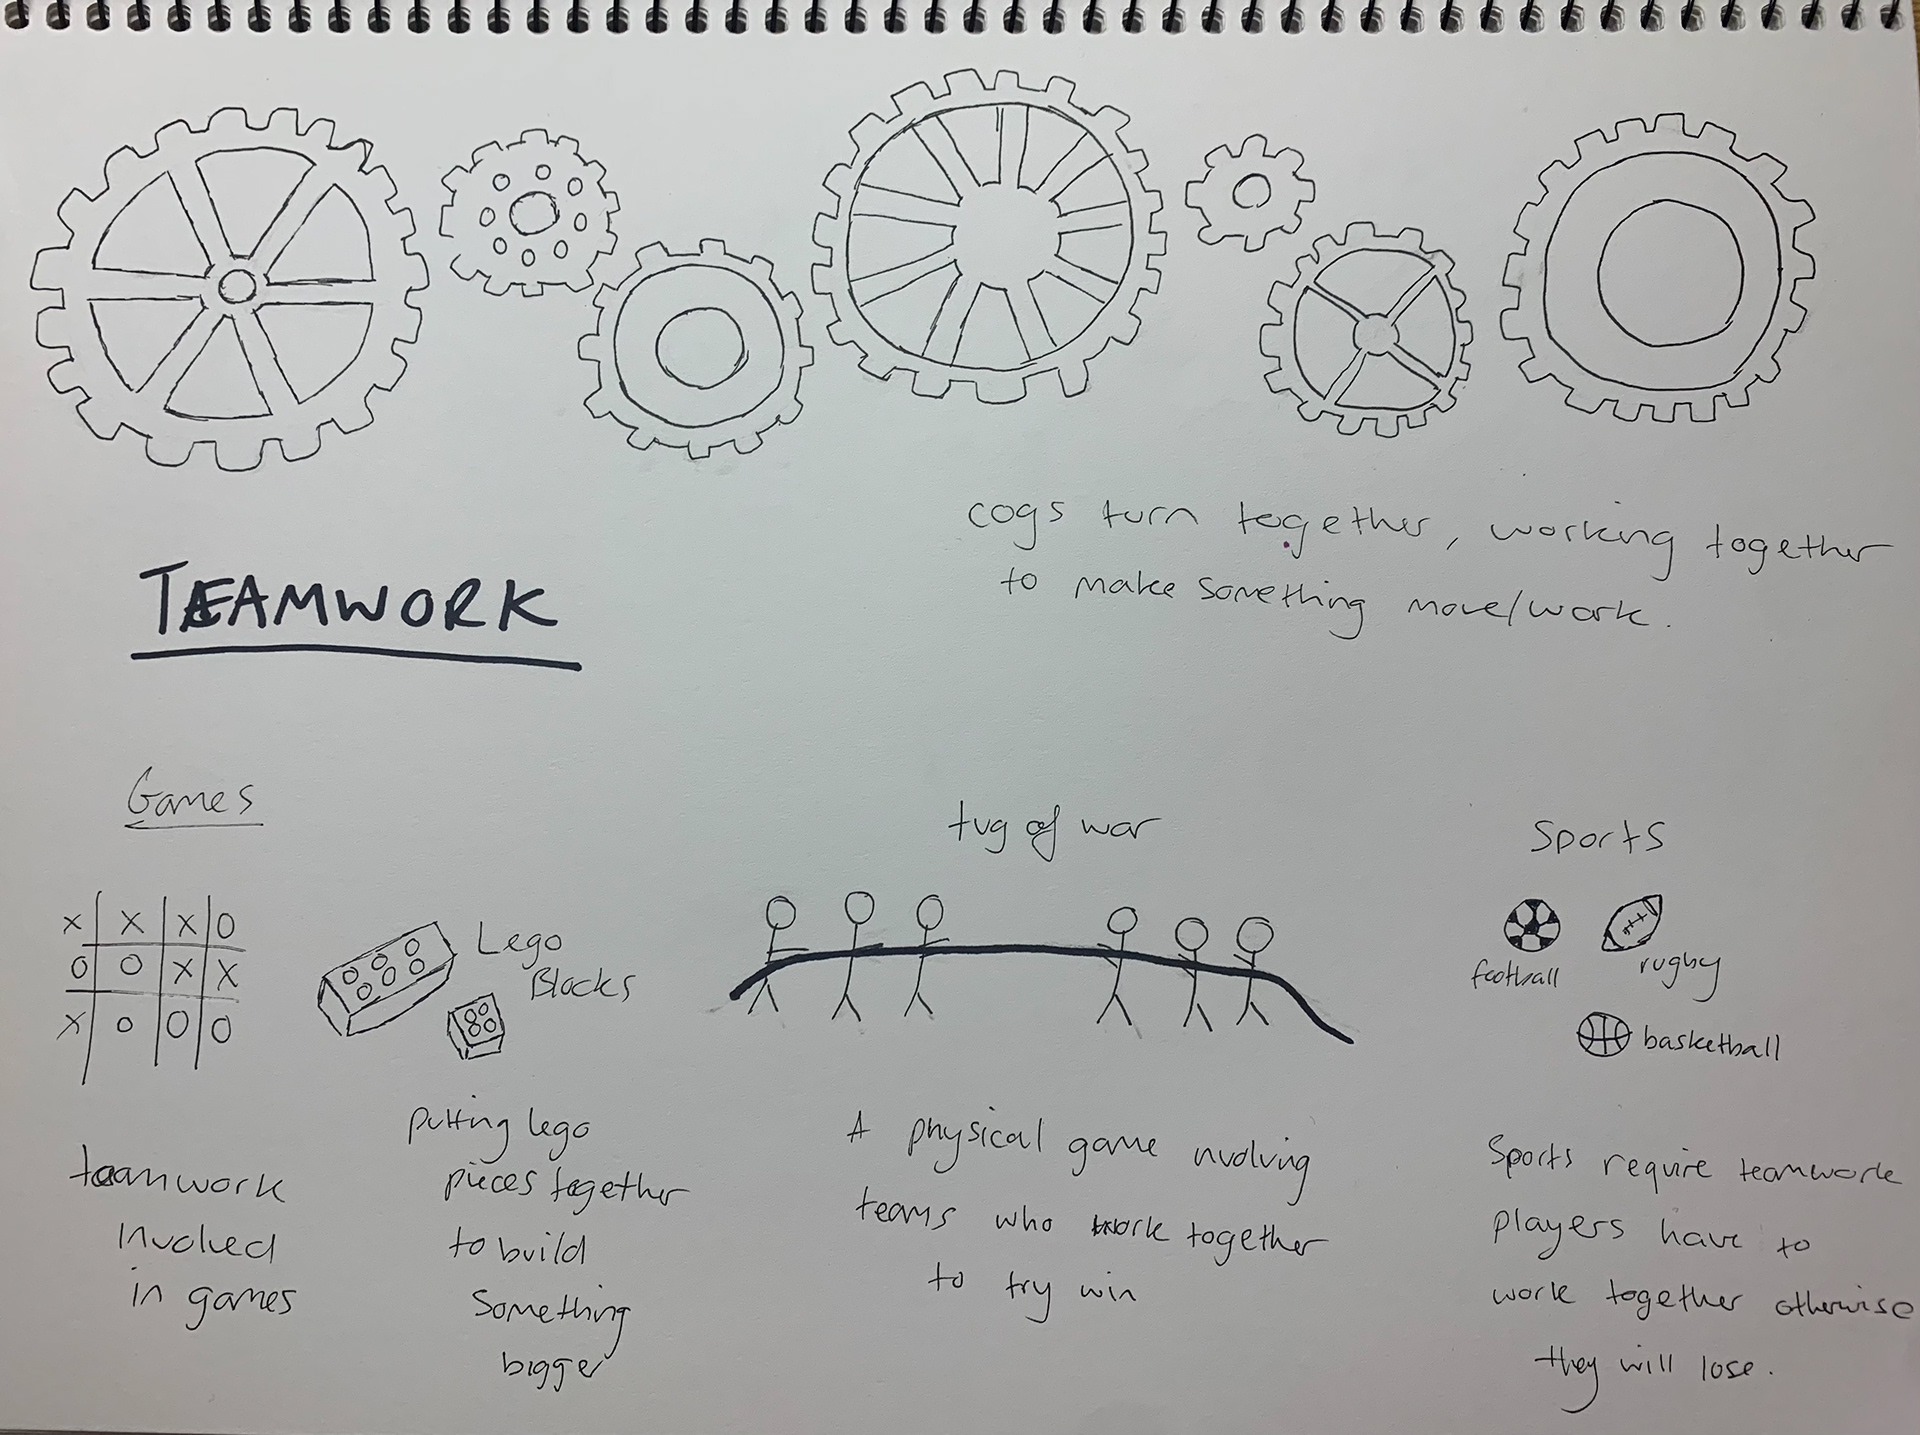 cogs turn together, working together
to make something move/work.
TEAMWORK
Games
x x x o
o o x x
x o o o
teamwork
involved
in games
Lego
Blocks
putting lego
pieces together
to build
something
bigger
tug of war
A physical game nvolving
teams who work together
to try win
Sports
football
rugby
basketball
Sports require teamwork
players have to
work together otherwise
they will lose.